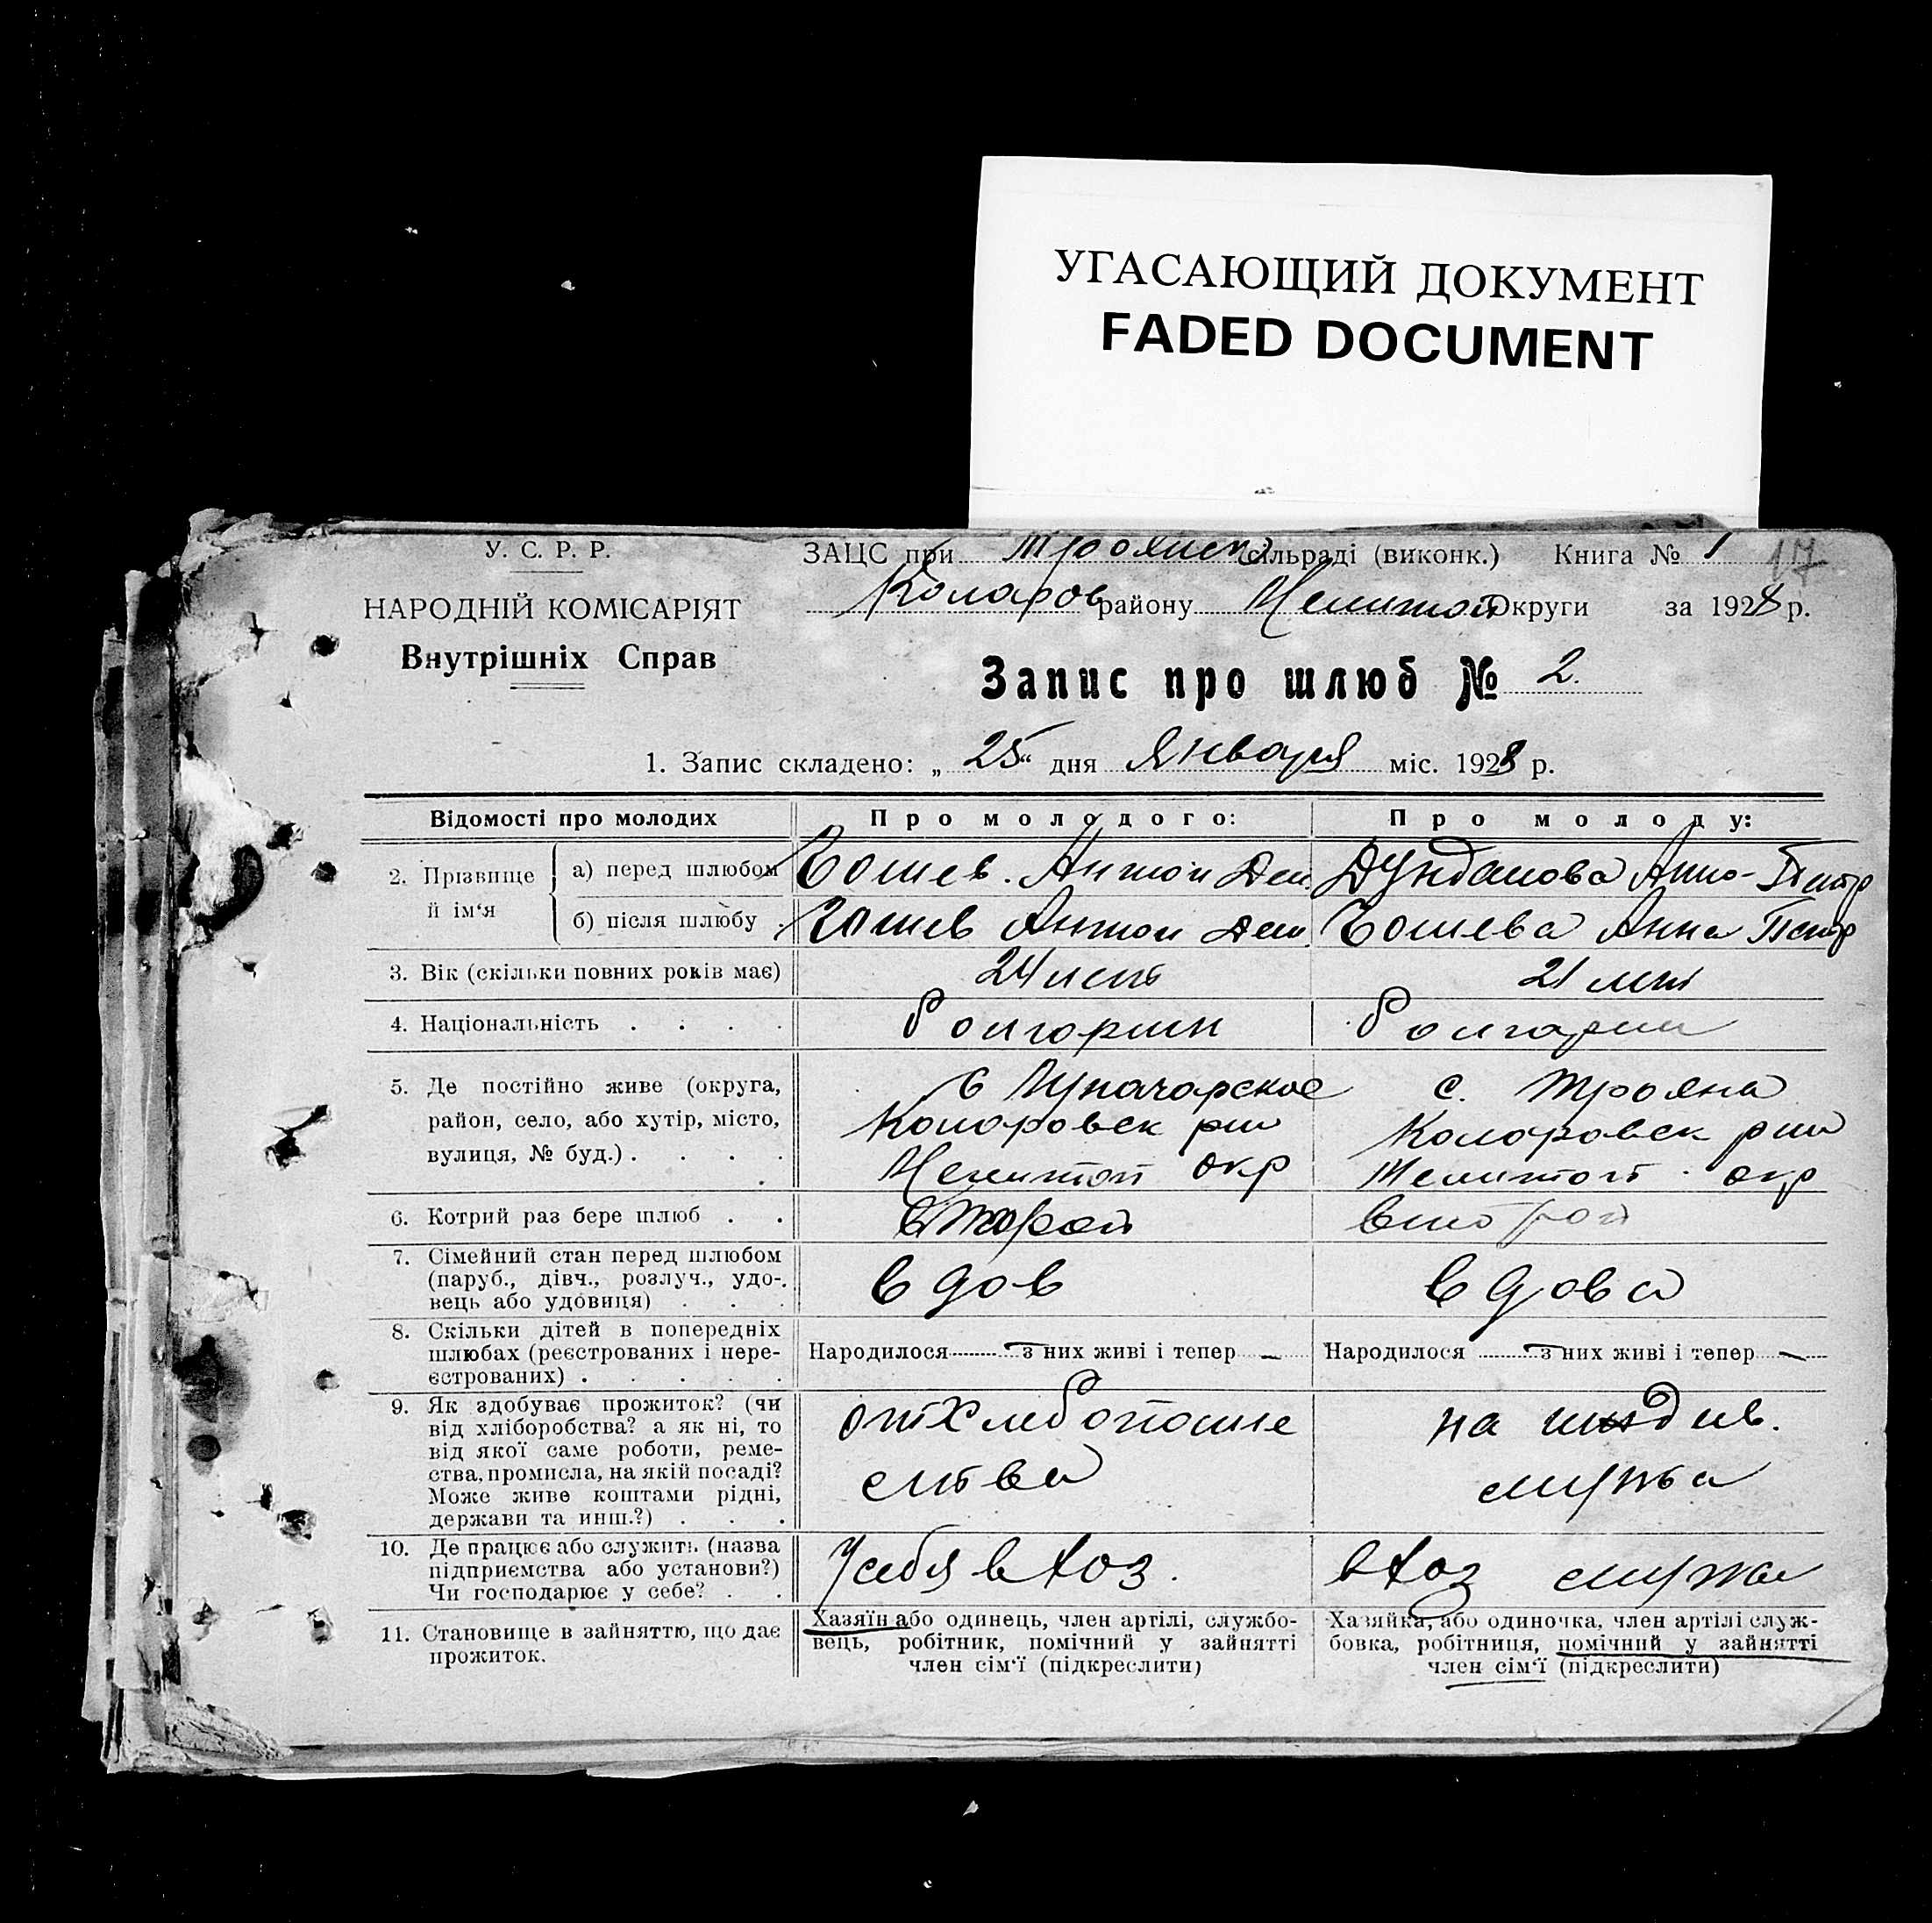 УГАСАЮЩИЙ ДОКУМЕНТ
FADED DOCUMENT
У. С. Р. Р.
НАРОДНІЙ КОМІСАРІЯТ
Внутрішніх Справ
ЗАЦС при Троянск сільраді (виконк.) Книга № 1 17
Коларов району Мелитоп Округи за 1928 р.
Запис про шлюб № 2.
1. Запис складено: „ 25 “ дня Января міс. 1928 р.
Відомості про молодих Про молодого: Про молоду:
2. Прізвище й ім‘я
а) перед шлюбом Гошев. Антон Дем. Дунданова Анна Петр
б) після шлюбу Гошев Антон Дем. Гошева Анна Петр
3. Вік (скільки повних років має) 24 лет 21 лет
4. Національність . . . . болгарин болгарин
5. Де постійно живе (округа,
район, село, або хутір, місто,
вулиця, № буд.) . . . .
с Луначарское
Коларовск рн
Мелитоп окр
с. Трояна
Коларовск рн
Мелитоп окр
6. Котрий раз бере шлюб . . второй второй
7. Сімейний стан перед шлюбом
(паруб., дівч., розлуч., удо-
вець або удовиця) . . .
вдов вдова
8. Скільки дітей в попередніх
шлюбах (реєстрованих і нере-
єстрованих) . . . . .
Народилося — з них живі і тепер —
Народилося — з них живі і тепер —
9. Як здобуває прожиток? (чи
від хліборобства? а як ні, то
від якої саме роботи, реме-
ства, промисла, на якій посаді?
Може живе коштами рідні,
держави та инш.?) . . .
от хлебопаше
ства
на иждив.
мужа
10. Де працює або служить (назва
підприємства або установи?)
Чи господарює у себе? . .
У себя в хоз.
в хоз мужа
11. Становище в зайняттю, що дає
прожиток.
Хазяїн або одинець, член артілі, службо-
вець, робітник, помічний у зайнятті
член сім‘ї (підкреслити)
Хазяйка, або одиночка, член артілі служ-
бовка, робітниця, помічний у зайнятті
член сім‘ї (підкреслити)